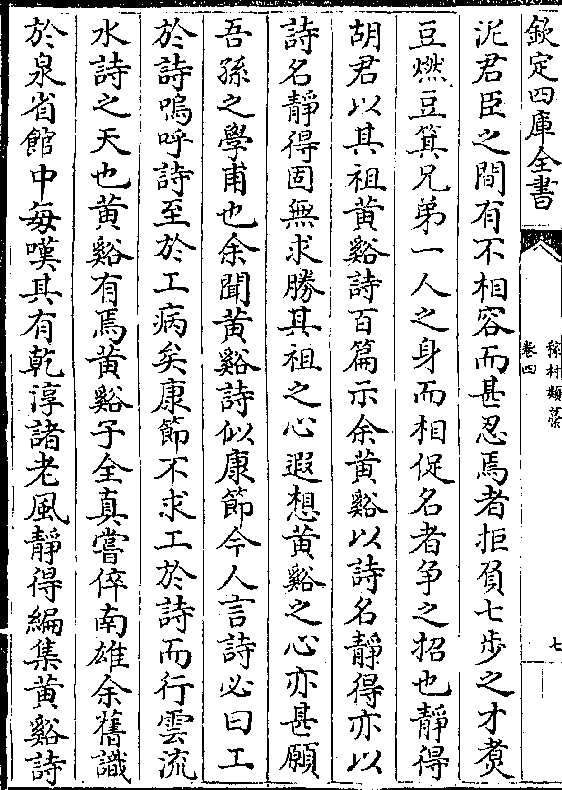 欽定四庫全書
稼村類藁
卷四
七
泥君臣之間有不相容而甚忍焉者拒負七步之才煑
豆燃豆箕兄弟一人之身而相促名者争之招也靜得
胡君以其祖黄谿詩百篇示余黄谿以詩名靜得亦以
詩名靜得固無求勝其祖之心遐想黄谿之心亦甚願
吾孫之學甫也余聞黄谿詩似康節今人言詩必曰工
於詩嗚呼詩至於工病矣康節不求工於詩而行雲流
水詩之天也黄谿有焉黄谿子全真嘗倅南雄余舊識
於泉省館中每嘆其有乾淳諸老風靜得編集黄谿詩